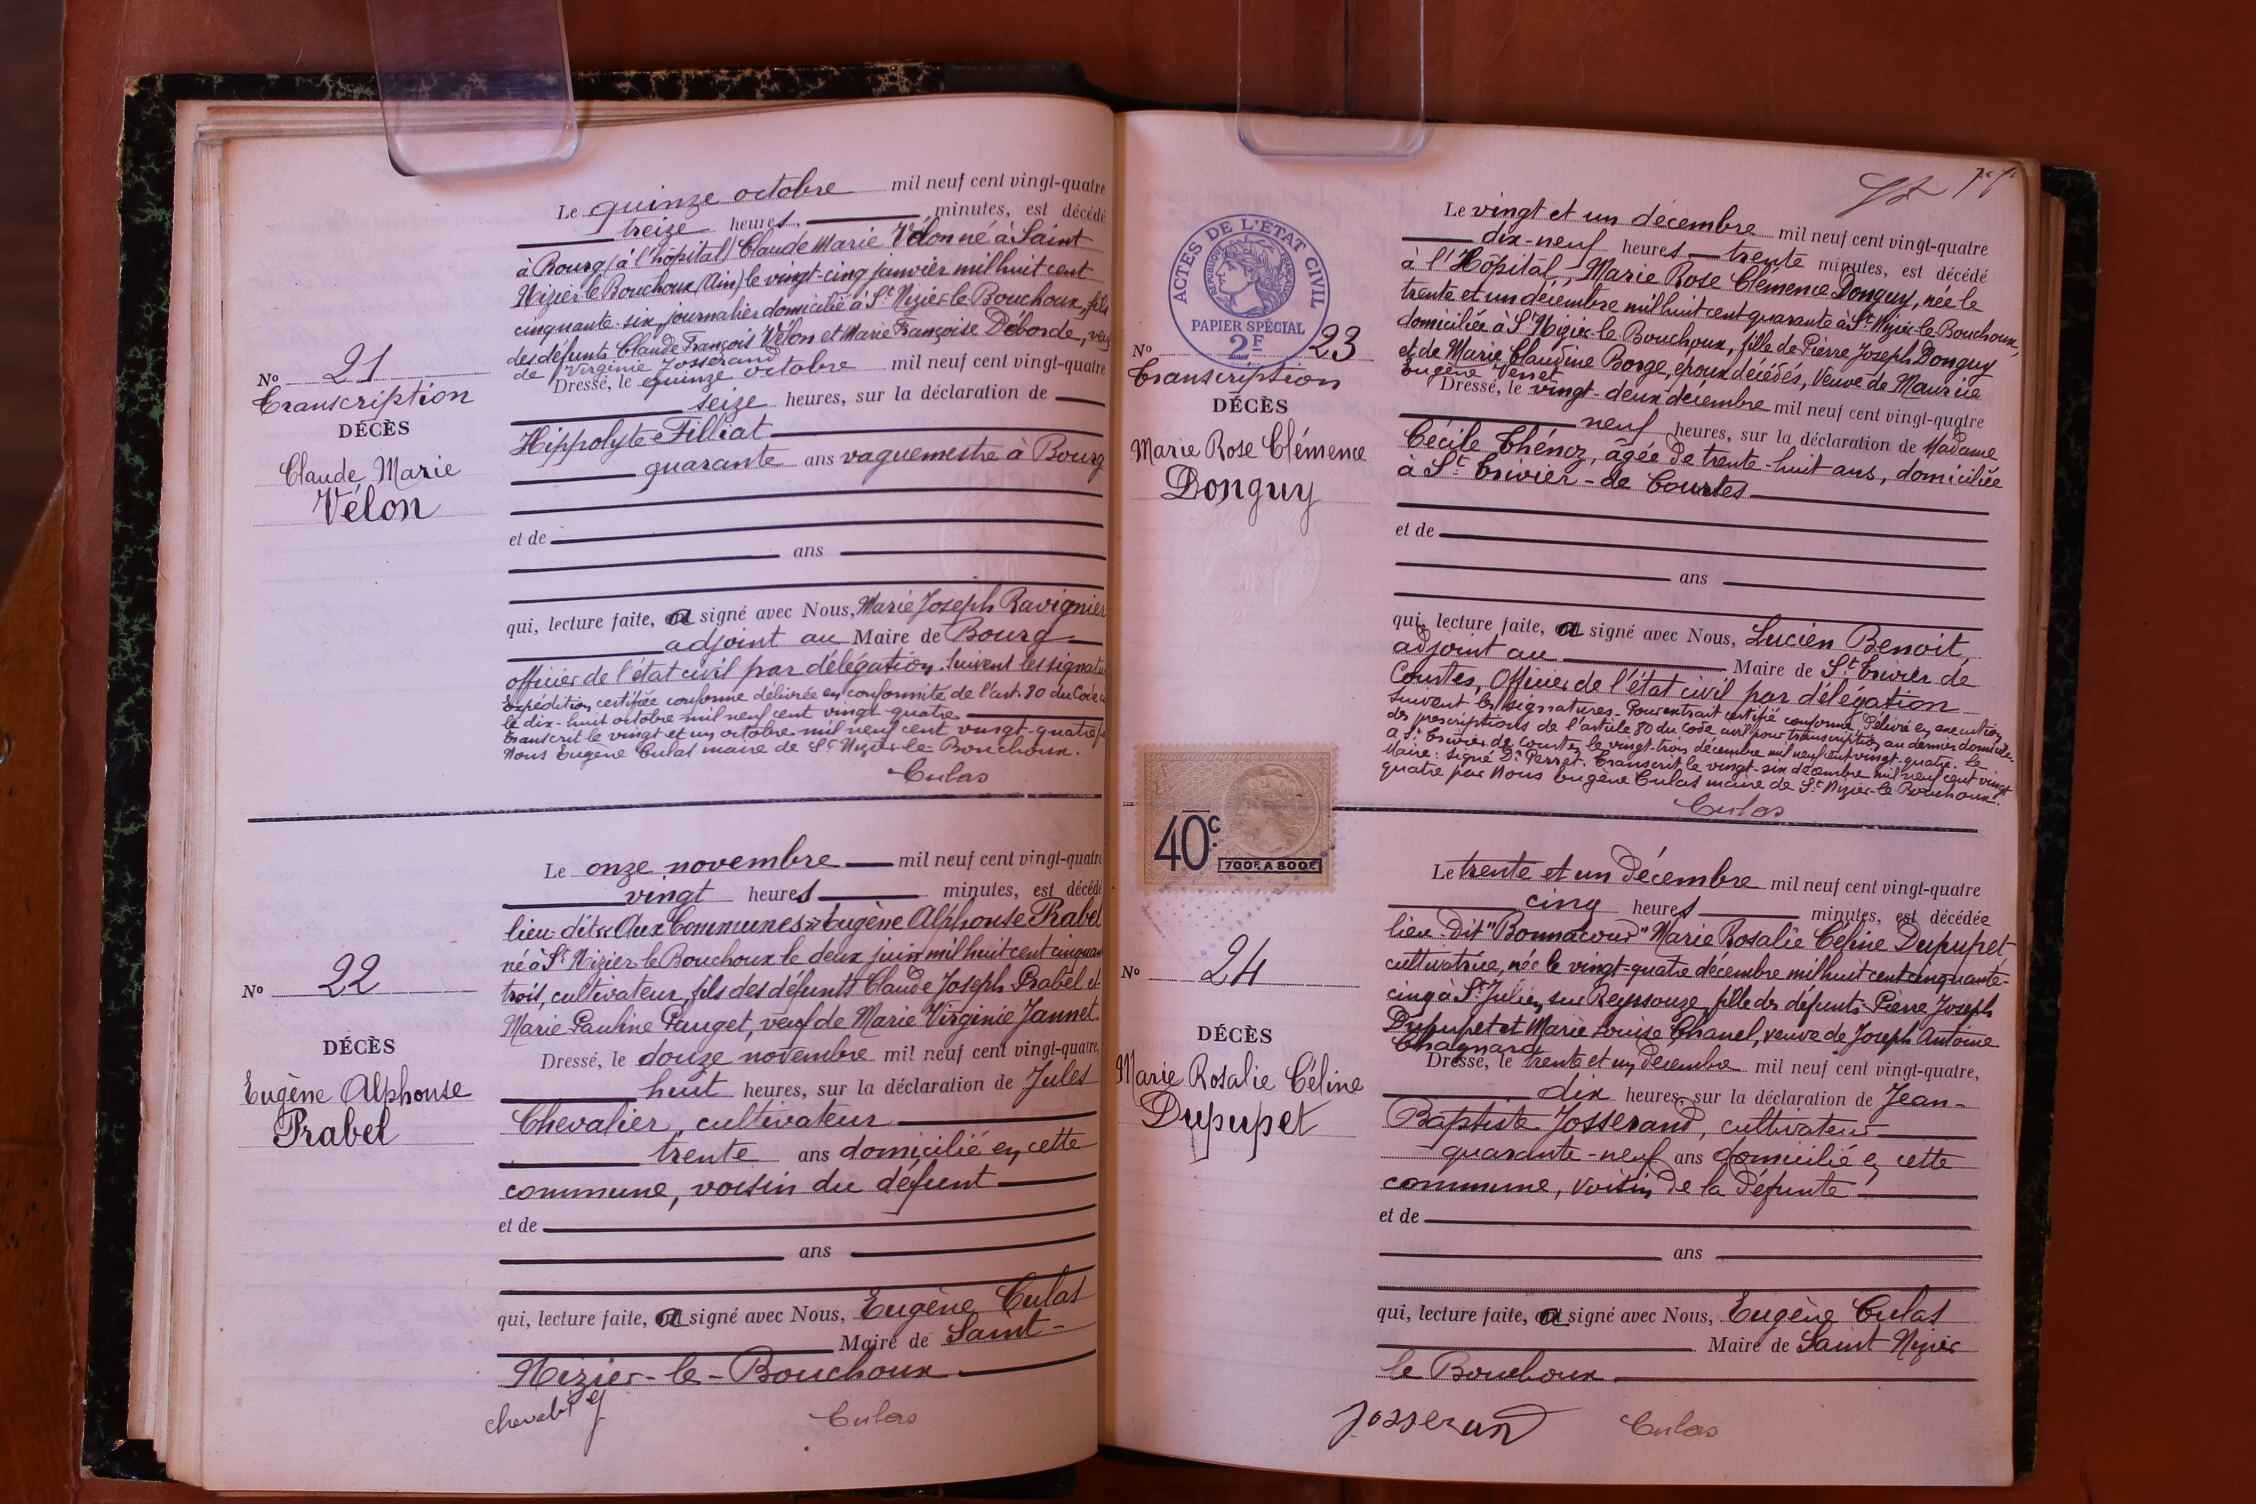 Le quinze octobre mil neuf cent vingt-quatre
treize heures, minutes, est décédé
à Bourg (à l'hôpital) Claude Marie Vélon né à Saint
Nizier le Bouchoux (Ain) le vingt-cinq janvier mil huit cent
cinquante-six, journalier domicilié à St Nizier-le Bouchoux, fils
des défunts Claude François Vélon et Marie Françoise Déborde, veuf
de Virginie Josserand
Dressé, le quinze octobre mil neuf cent vingt-quatre
seize heures, sur la déclaration de
Hippolyte Filliat
quarante ans vaguemestre à Bourg
et de
ans
qui, lecture faite, a signé avec Nous, Marie Joseph Ravignier
adjoint au Maire de Bourg
officier de l'état civil par délégation. Suivent les signatu
Expédition certifiée conforme délivrée en conformité de l'art. 80 du Code
le dix-huit octobre mil neuf cent vingt-quatre
Transcrit le vingt et un octobre mil neuf cent vingt-quatre
Nous Eugène Culas maire de St Nizier-le-Bouchoux.
Culas
No 21
Transcription
DÉCÈS
Claude Marie
Vélon
Le onze novembre mil neuf cent vingt-quatre
vingt heures minutes, est décédé
lieu-dit "Aux Communes" Eugène Alphonse Prabel
né à St Nizier le Bouchoux le deux juin mil huit cent cinquan
trois, cultivateur, fils des défunts Claude Joseph Prabel et
Marie Pauline Pauget, veuf de Marie Virginie Jannet
Dressé, le douze novembre mil neuf cent vingt-quatre,
huit heures, sur la déclaration de Jules
Chevalier, cultivateur
trente ans domicilié en cette
commune, voisin du défunt
et de
ans
qui, lecture faite, a signé avec Nous, Eugène Culas
Maire de Saint-
Nizier-le-Bouchoux
Culas
No 22
DÉCÈS
Eugène Alphonse
Prabel
ACTES DE L'ÉTAT CIVIL
RÉPUBLIQUE FRANÇAISE
PAPIER SPÉCIAL
2F
No 23
Transcription
DÉCÈS
Marie Rose Clémence
Donguy
Le vingt et un décembre mil neuf cent vingt-quatre
dix-neuf heures trente minutes, est décédé
à l'Hôpital, Marie Rose Clémence Donguy, née le
trente et un décembre mil huit cent quarante à St Nizier-le-Bouchoux,
domiciliée à St Nizier-le Bouchoux, fille de Pierre Joseph Donguy
et de Marie Claudine Borge, époux décédés, Veuve de Maurice
Eugène Verset
Dressé, le vingt-deux décembre mil neuf cent vingt-quatre
neuf heures, sur la déclaration de Madame
Cécile Thénoz, âgée de trente-huit ans, domiciliée
à St Trivier-de Courtes
et de
ans
qui, lecture faite, a signé avec Nous, Lucien Benoit,
adjoint au Maire de St Trivier de
Courtes, Officier de l'état civil par délégation
Suivent les signatures. Pour extrait certifié conforme délivré en exécution
des prescriptions de l'article 80 du Code civil pour transcription au dernier domicile.
A St Trivier de Courtes le vingt-trois décembre mil neuf cent vingt-quatre. Le
Maire: signé Dr Perret. Transcrit le vingt-six décembre mil neuf cent vingt
quatre par Nous Eugène Culas maire de St Nizier-le Bouchoux.
Culas
40c
700F. A 800F.
Le trente et un décembre mil neuf cent vingt-quatre
cinq heures minutes, est décédée
lieu-dit "Bonnacour" Marie Rosalie Céline Dupupet
cultivatrice, née le vingt-quatre décembre mil huit cent cinquante-
cinq à St Julien sur Reyssouze, fille des défunts Pierre Joseph
Dupupet et Marie Louise Chanel, veuve de Joseph Antoine
Chagnard
Dressé, le trente et un décembre mil neuf cent vingt-quatre,
dix heures, sur la déclaration de Jean-
Baptiste Josserand, cultivateur
quarante-neuf ans domicilié en cette
commune, voisin de la défunte
et de
ans
qui, lecture faite, a signé avec Nous, Eugène Culas
Maire de Saint Nizier
le Bouchoux
Josserand Culas
No 24
DÉCÈS
Marie Rosalie Céline
Dupupet